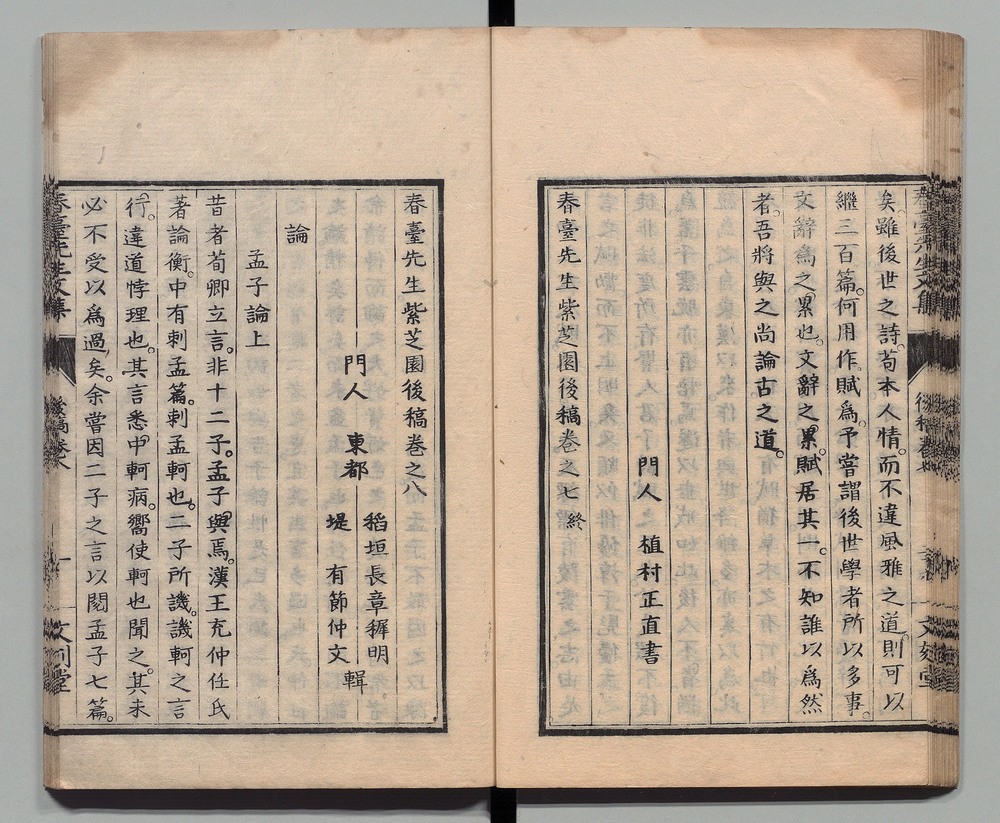 矣。雖後世之詩。苟本人情。而不違風雅之道。則可以
繼三百篇。何用作賦爲。予嘗謂後世學者所以多事。
文辭爲之累也。文辭之累。賦居其一。不知誰以爲然
者。吾將與之尚論古之道。
門人 植村正直書
春臺先生紫芝園後稿卷之七 終
春臺先生紫芝園後稿卷之八
門人 東都 稻垣長章穉明
堤有節仲文 輯
論
孟子論上
昔者荀卿立言。非十二子。孟子與焉。漢王充仲任氏
著論衡。中有刺孟篇。刺孟軻也。二子所譏。譏軻之言
行。違道悖理也。其言悉中軻病。嚮使軻也聞之。其未
必不受以爲過矣。余嘗因二子之言以閱孟子七篇。
春臺先生文集
後稿卷八